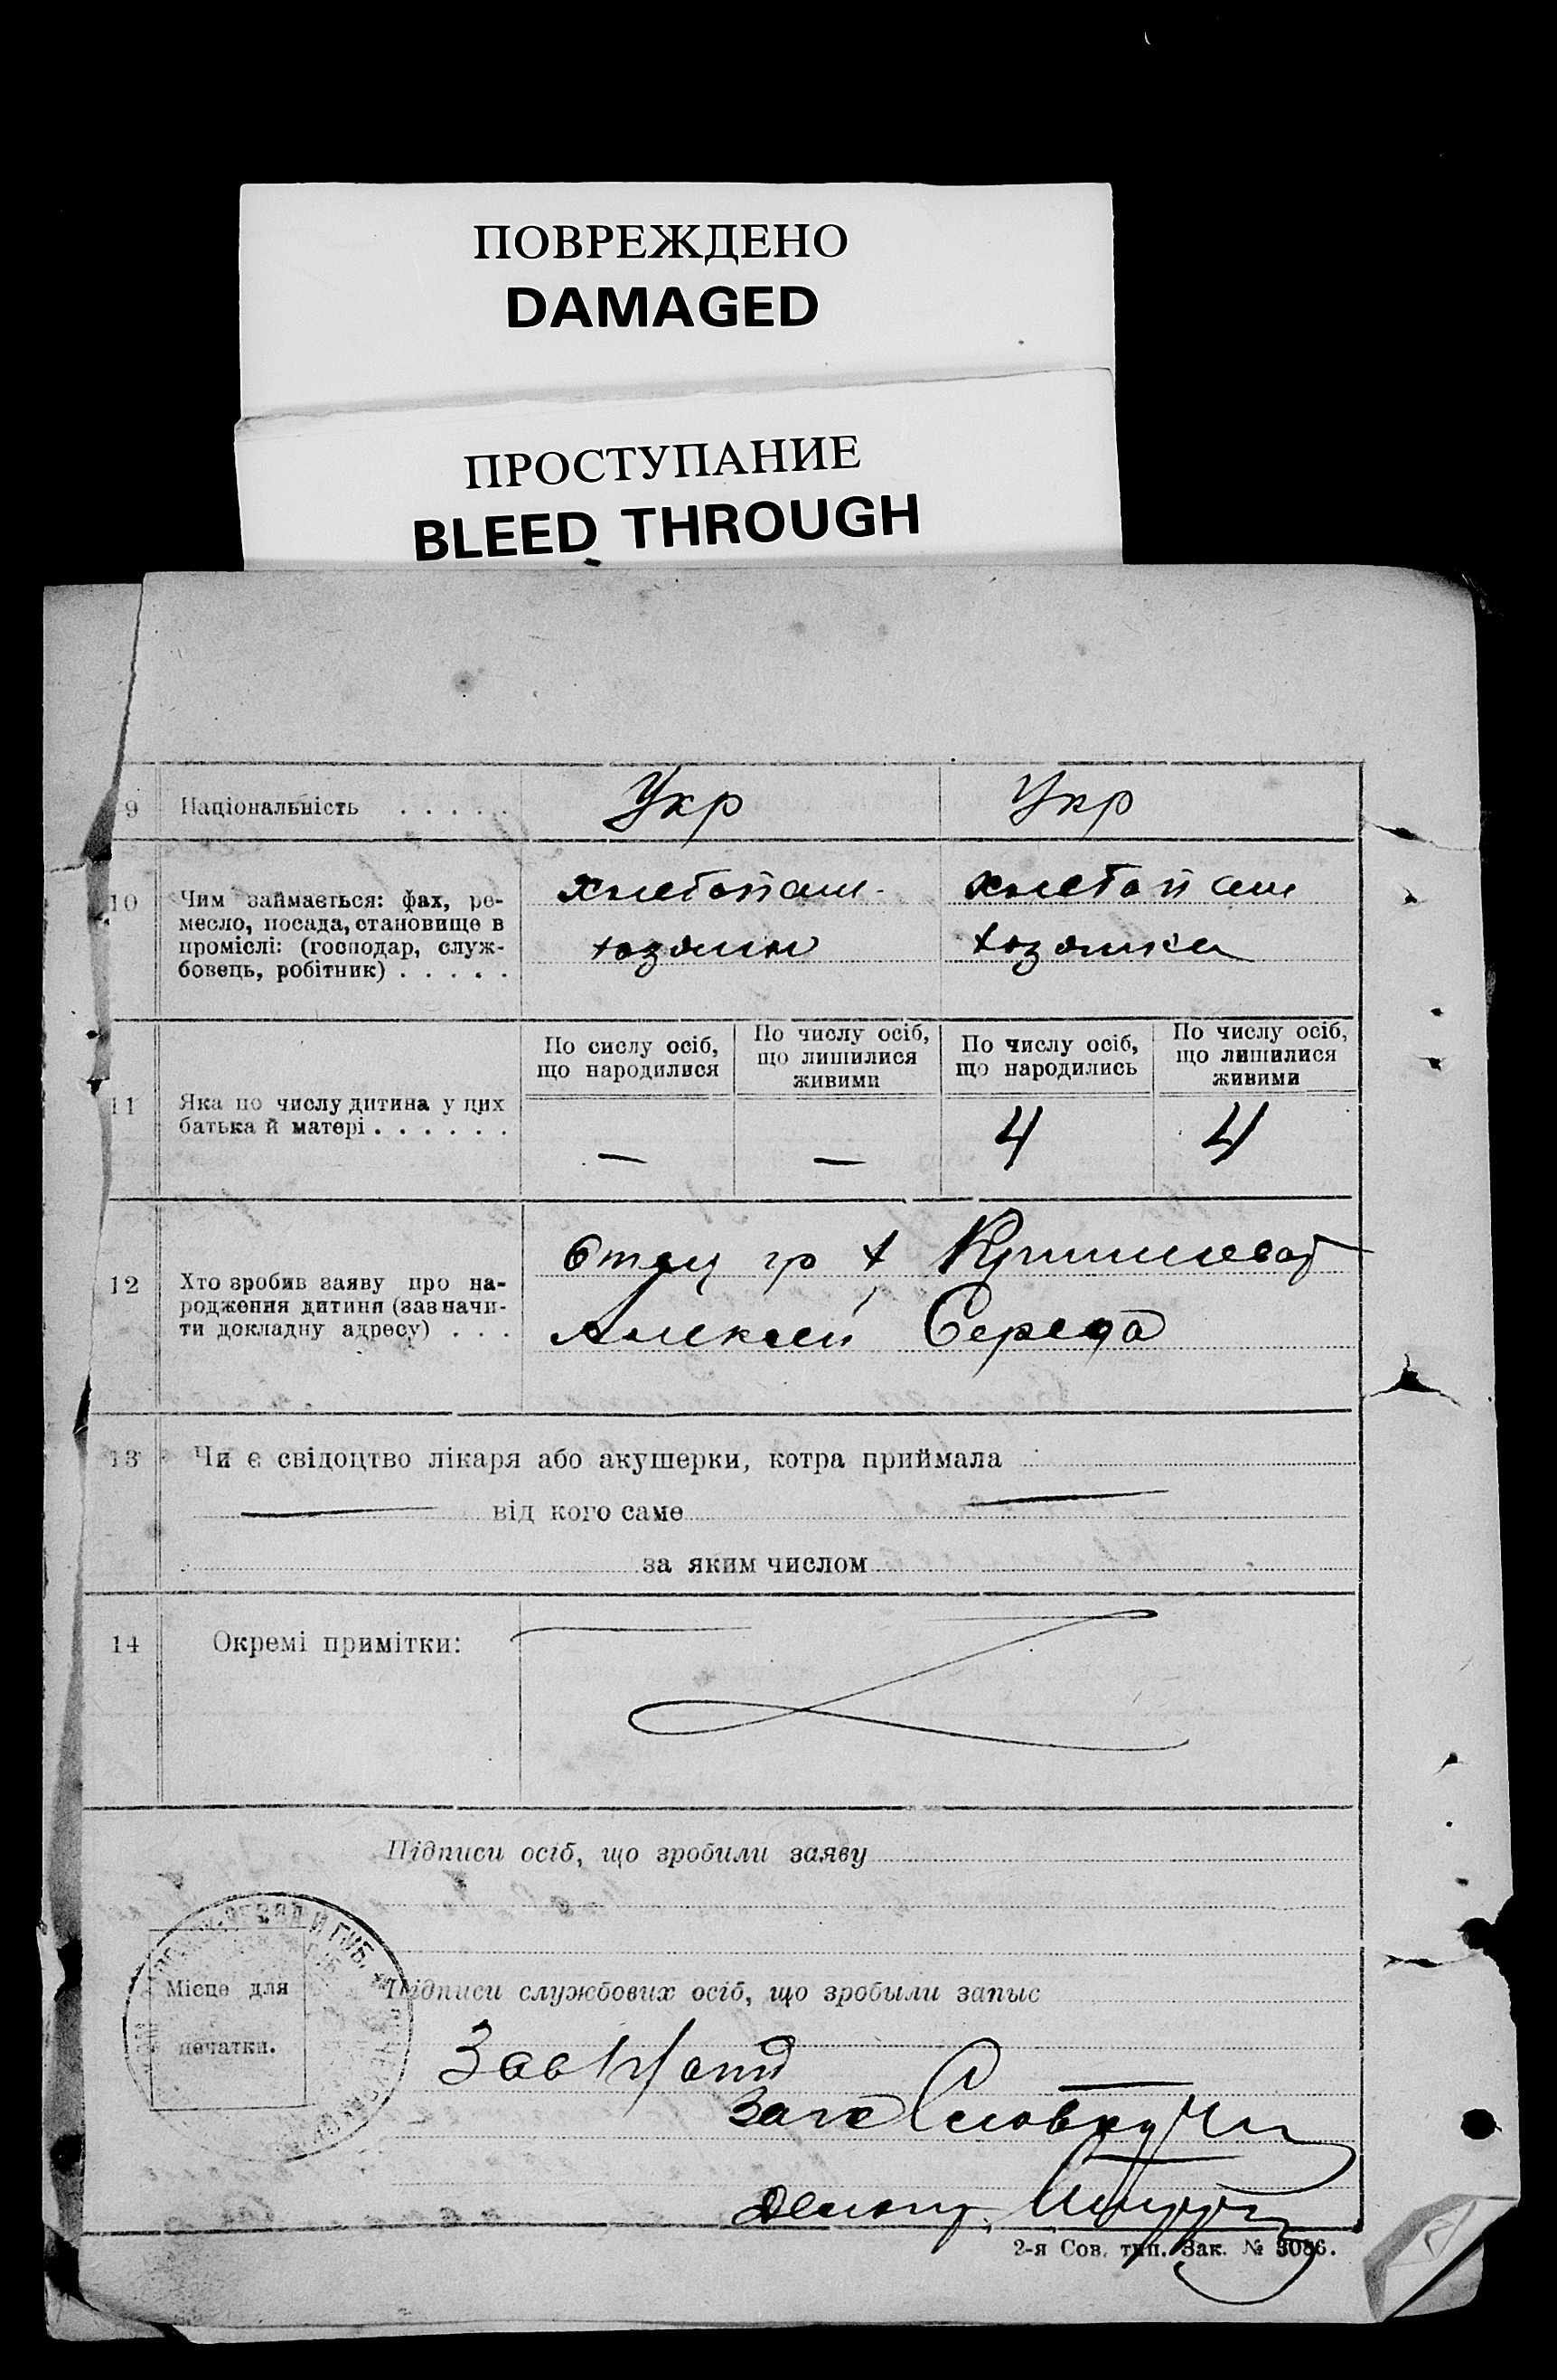 ПОВРЕЖДЕНО
DAMAGED
ПРОСТУПАНИЕ
BLEED THROUGH
9 Національність . . . . . Укр Укр
10 Чим займається: фах, ре-
месло, посада, становище в
проміслі: (господар, служ-
бовець, робітник) . . . . .
хлебопаш- хлебопаш
хозяин хозяика
11 Яка по числу дитина у цих
батька й матері . . . . . .
По сислу осіб,
що народилися
По числу осіб,
що лишилися
живими
По числу осіб,
що народились
По числу осіб,
що лишилися
живими
— — 4 4
12 Хто зробив заяву про на-
родження дитини (зазначи-
ти докладну адресу) . . .
Отец гр х
Алексей Середа
13 Чи є свідоцтво лікаря або акушерки, котра приймала
від кого саме
за яким числом
14 Окремі примітки:
Підписи осіб, що зробили заяву
Місце для
печатки.
Підписи службових осіб, що зробыли запыс
Зав
Делопр.
2-я Сов. тип. Зак. № 3086.